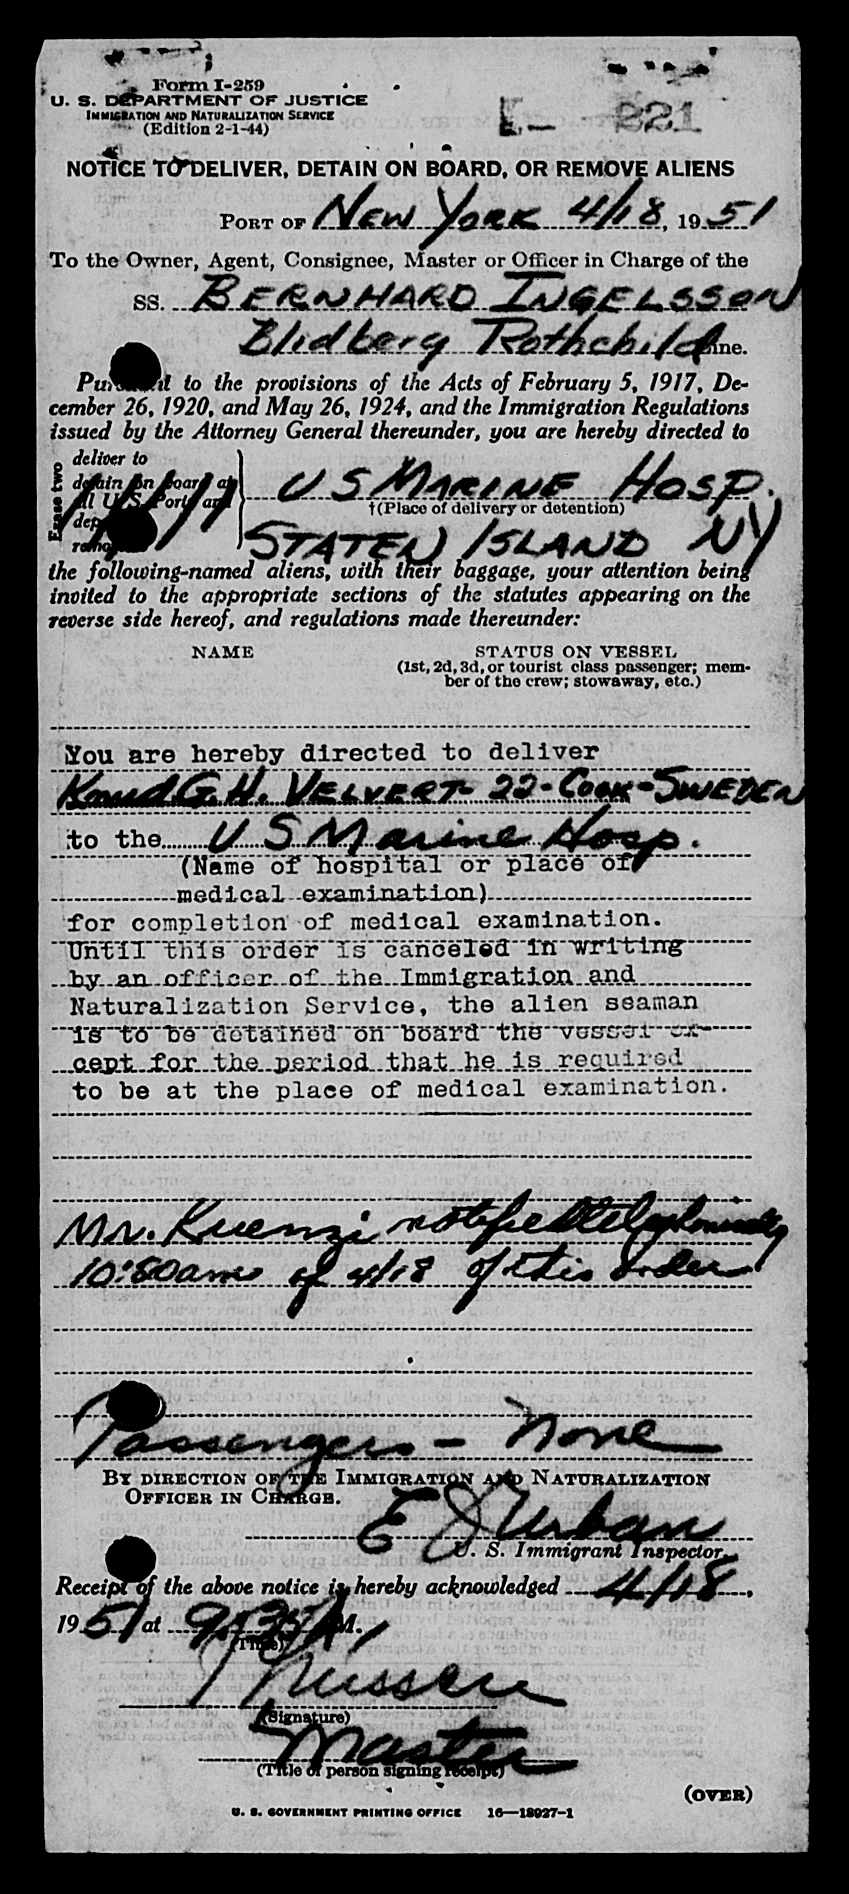 Form I-259
U. S. DEPARTMENT OF JUSTICE
IMMIGRATION AND NATURALIZATION SERVICE
(Edition 2-1-44)
E- 221
NOTICE TO DELIVER, DETAIN ON BOARD, OR REMOVE ALIENS
PORT OF NEW YORK 4/18, 1951
To the Owner, Agent, Consignee, Master or Officer in Charge of the
SS. BERNHARD INGELSSON
Blidberg Rothchild Line.
Pursuant to the provisions of the Acts of February 5, 1917, De-
cember 26, 1920, and May 26, 1924, and the Immigration Regulations
issued by the Attorney General thereunder, you are hereby directed to
Erase two
deliver to
detain on board at
all U. S. Ports and
US MARINE HOSP.
†(Place of delivery or detention)
STATEN ISLAND NY
the following-named aliens, with their baggage, your attention being
invited to the appropriate sections of the statutes appearing on the
reverse side hereof, and regulations made thereunder:
NAME STATUS ON VESSEL
(1st, 2d, 3d, or tourist class passenger; mem-
ber of the crew; stowaway, etc.)
You are hereby directed to deliver
Knud G. H. VELVERT- 22- COOK- SWEDEN
to the US Marine Hosp.
(Name of hospital or place of
medical examination)
for completion of medical examination.
Until this order is canceled in writing
by an officer of the Immigration and
Naturalization Service, the alien seaman
is to be detained on board the vessel ex-
cept for the period that he is required
to be at the place of medical examination.
Mr. Kuenzi notified telephonically
am of 4/18 of this order
Passengers - none
BY DIRECTION OF THE IMMIGRATION AND NATURALIZATION
OFFICER IN CHARGE.
E J Urban
U. S. Immigrant Inspector.
Receipt of the above notice is hereby acknowledged 4/18,
1951 at 9:35 A M.
(Title)
(Signature)
Master
(Title of person signing receipt)
(OVER)
U. S. GOVERNMENT PRINTING OFFICE 16—18027-1